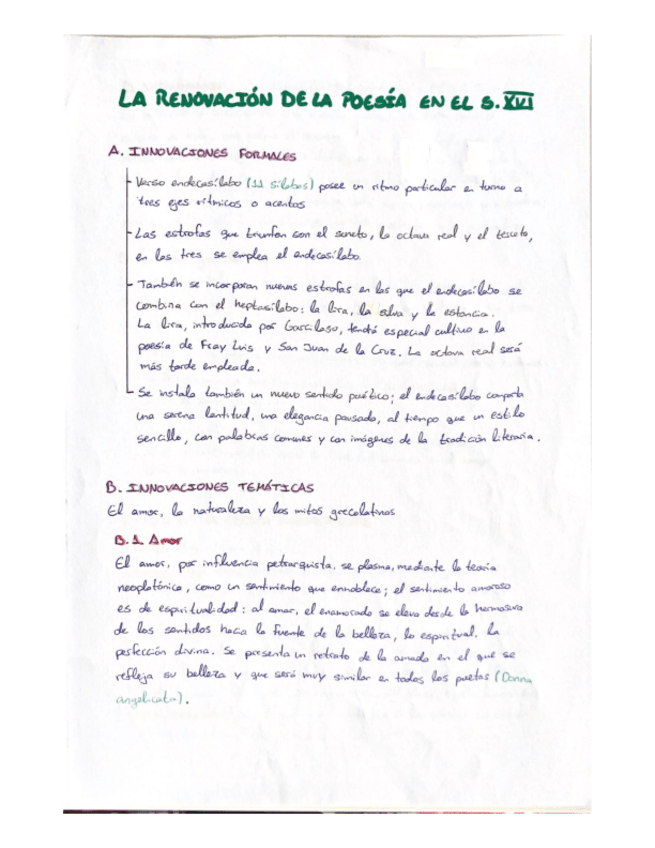 LA RENOVACIÓN DE LA POESÍA EN EL S. XVI
A. INNOVACIONES FORMALES
- Verso endecasílabo (11 sílabas) posee un ritmo particular en turno a
tres ejes rítmicos o acentos
- Las estrofas que triunfan son el soneto, la octava real y el terceto,
en las tres se emplea el endecasílabo.
- También se incorporan nuevas estrofas en las que el endecasílabo se
combina con el heptasílabo: la lira, la silva y la estancia.
La lira, introducida por Garcilaso, tendrá especial cultivo en la
poesía de Fray Luis y San Juan de la Cruz. La octava real será
más tarde empleada.
- Se instala también un nuevo sentido poético; el endecasílabo comporta
una serena lentitud, una elegancia pausada, al tiempo que un estilo
sencillo, con palabras comunes y con imágenes de la tradición literaria.
B. INNOVACIONES TEMÁTICAS
El amor, la naturaleza y los mitos grecolatinos
B.1 Amor
El amor, por influencia petrarquista, se plasma, mediante la teoría
neoplatónica, como un sentimiento que ennoblece; el sentimiento amoroso
es de espiritualidad: al amar, el enamorado se eleva desde la hermosura
de los sentidos hacia la fuente de la belleza, lo espiritual. La
perfección divina. Se presenta un retrato de la amada en el que se
refleja su belleza y que será muy similar en todos los poetas (Donna
angelicata).